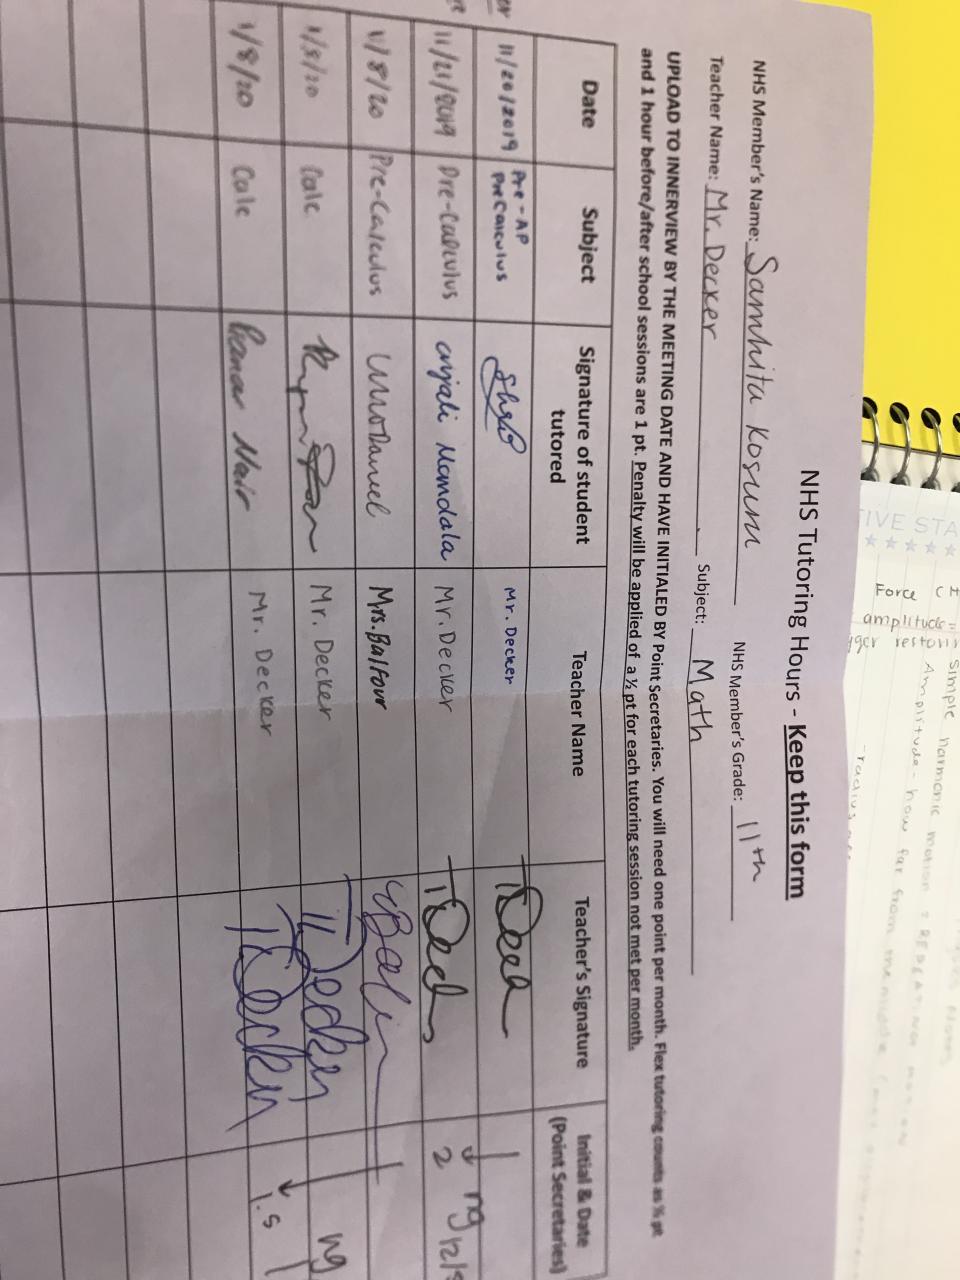 NHS Tutoring Hours - Keep this form
NHS Member's Name: Samhita Kosuru NHS Member's Grade: 11th
Teacher Name: Mr. Decker Subject: Math
UPLOAD TO INNERVIEW BY THE MEETING DATE AND HAVE INITIALED BY Point Secretaries. You will need one point per month. Flex tutoring counts as ½ pt
and 1 hour before/after school sessions are 1 pt. Penalty will be applied of a ½ pt for each tutoring session not met per month.
Date Subject Signature of student tutored Teacher Name Teacher's Signature Initial & Date (Point Secretaries)
11/20/2019 Pre-AP PreCalculus Mr. Decker 1
11/21/2019 Pre-Calculus anjali Mandala Mr. Decker 2 ng 12/
1/8/20 Pre-Calculus Mrs. Balfour
1/8/20 Calc Mr. Decker 1 ng
1/8/20 Calc Nair Mr. Decker 1.5
IVE STA
Force
amplitude =
Simple harmonic motion
Amplitude - how far from the middle